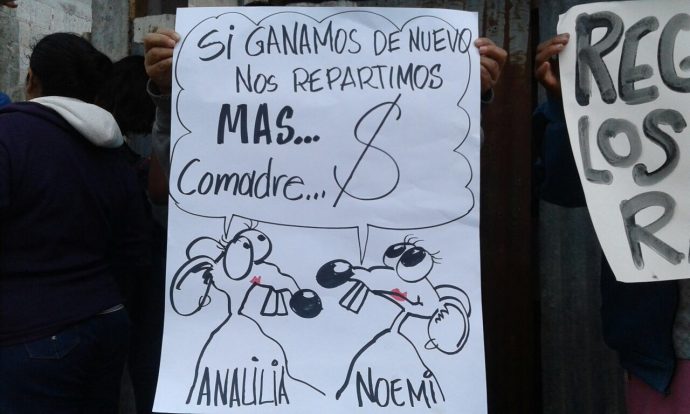 Si GANAMOS DE NUEVO
NOS REPARTIMOS
MAS... $
Comadre...
ANALILIA
NOEMI
REG
LOS
R